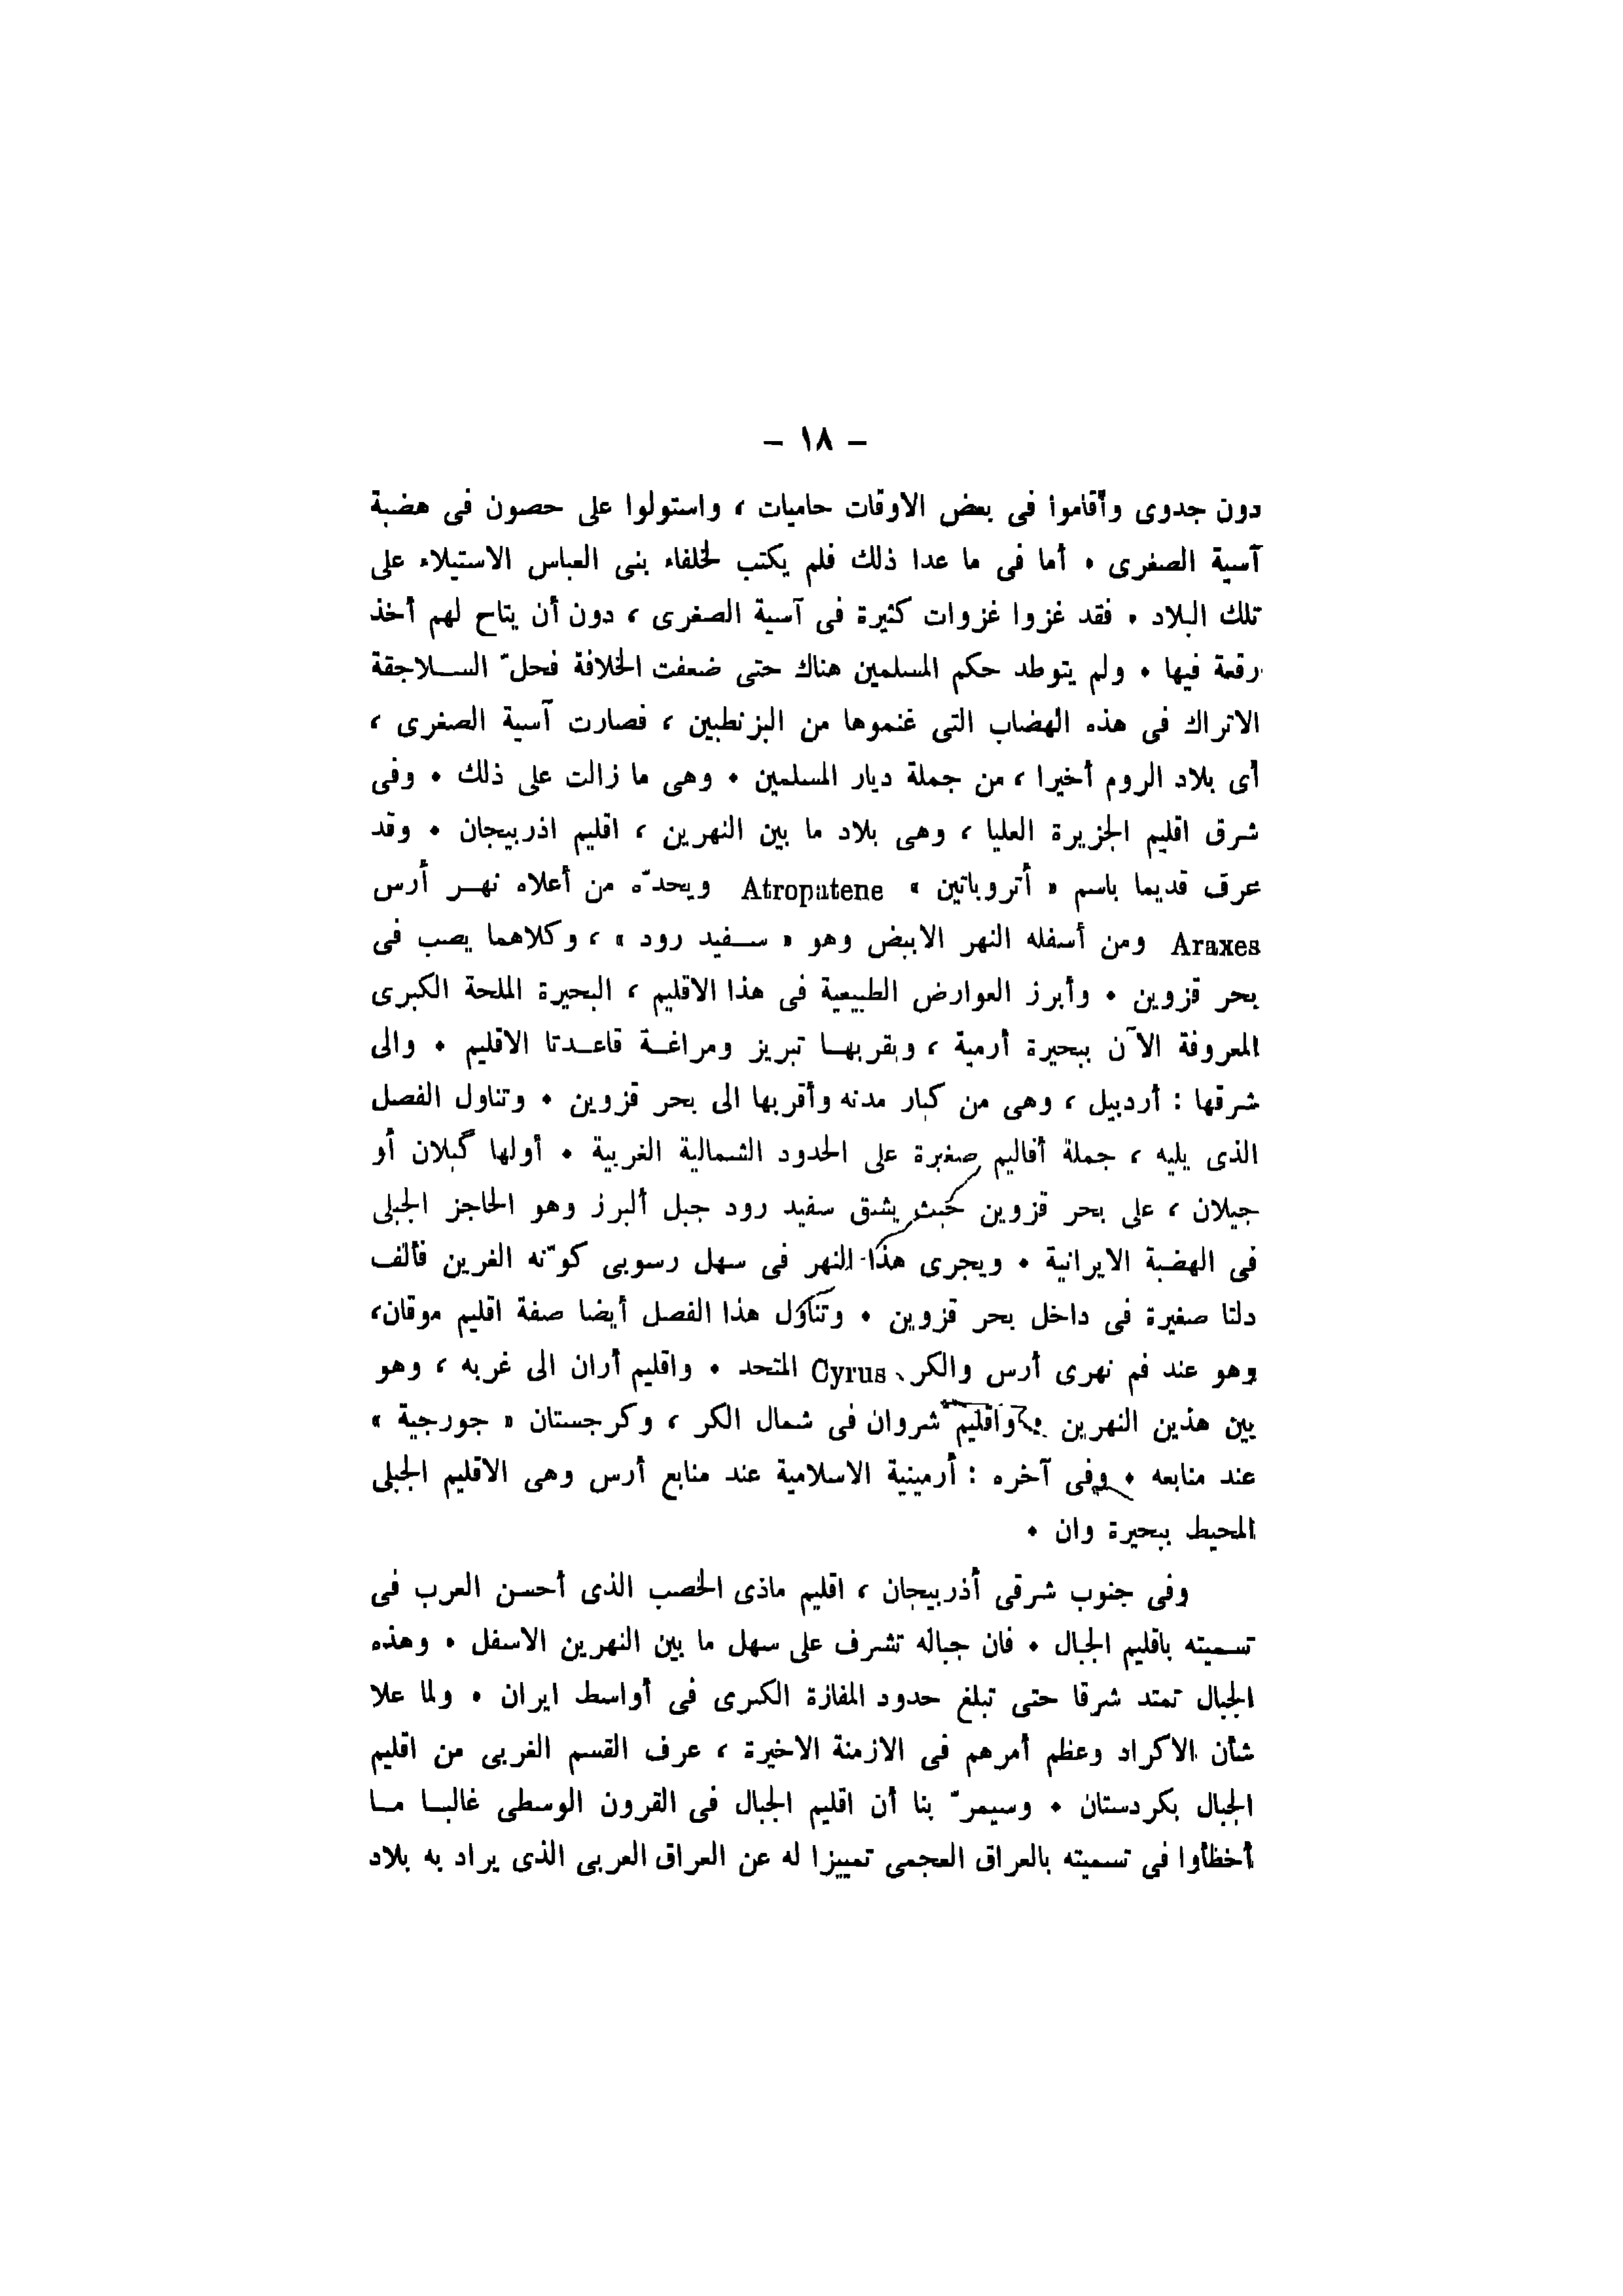 – ١٨ –
دون جدوى وأقاموا فى بعض الاوقات حاميات ، واستولوا على حصون فى هضبة
آسية الصغرى • أما فى ما عدا ذلك فلم يكتب لخلفاء بنى العباس الاستيلاء على
تلك البلاد • فقد غزوا غزوات كثيرة فى آسية الصغرى ، دون أن يتاح لهم أخذ
رقعة فيها • ولم يتوطد حكم المسلمين هناك حتى ضعفت الخلافة فحلّ الســلاجقة
الاتراك فى هذه الهضاب التى غنموها من البزنطيين ، فصارت آسية الصغرى ،
أى بلاد الروم أخيرا ، من جملة ديار المسلمين • وهى ما زالت على ذلك • وفى
شرق اقليم الجزيرة العليا ، وهى بلاد ما بين النهرين ، اقليم اذربيجان • وقد
عرف قديما باسم « أتروباتين » Atropatene ويحدّه من أعلاه نهــر أرس
Araxes ومن أسفله النهر الابيض وهو « ســفيد رود » ، وكلاهما يصب فى
بحر قزوين • وأبرز العوارض الطبيعية فى هذا الاقليم ، البحيرة الملحة الكبرى
المعروفة الآن ببحيرة أرمية ، وبقربهــا تبريز ومراغــة قاعــدتا الاقليم • والى
شرقها : أردبيل ، وهى من كبار مدنه وأقربها الى بحر قزوين • وتناول الفصل
الذى يليه ، جملة أقاليم صغيرة على الحدود الشمالية الغربية • أولها گيلان أو
جيلان ، على بحر قزوين حيث يشق سفيد رود جبل ألبرز وهو الحاجز الجبلى
فى الهضبة الايرانية • ويجرى هذا النهر فى سهل رسوبى كوّنه الغرين فألف
دلتا صغيرة فى داخل بحر قزوين • وتناول هذا الفصل أيضا صفة اقليم موقان،
وهو عند فم نهرى أرس والكر Cyrus المتحد • واقليم أران الى غربه ، وهو
بين هذين النهرين • واقليم شروان فى شمال الكر ، وكرجستان « جورجية »
عند منابعه • وفى آخره : أرمينية الاسلامية عند منابع أرس وهى الاقليم الجبلى
المحيط ببحيرة وان •
وفى جنوب شرقى أذربيجان ، اقليم ماذى الخصب الذى أحسن العرب فى
تسميته باقليم الجبال • فان جباله تشرف على سهل ما بين النهرين الاسفل • وهذه
الجبال تمتد شرقا حتى تبلغ حدود المفازة الكبرى فى أواسط ايران • ولما علا
شأن الاكراد وعظم أمرهم فى الازمنة الاخيرة ، عرف القسم الغربى من اقليم
الجبال بكردستان • وسيمرّ بنا أن اقليم الجبال فى القرون الوسطى غالبــا مــا
أخطأوا فى تسميته بالعراق العجمى تمييزا له عن العراق العربى الذى يراد به بلاد